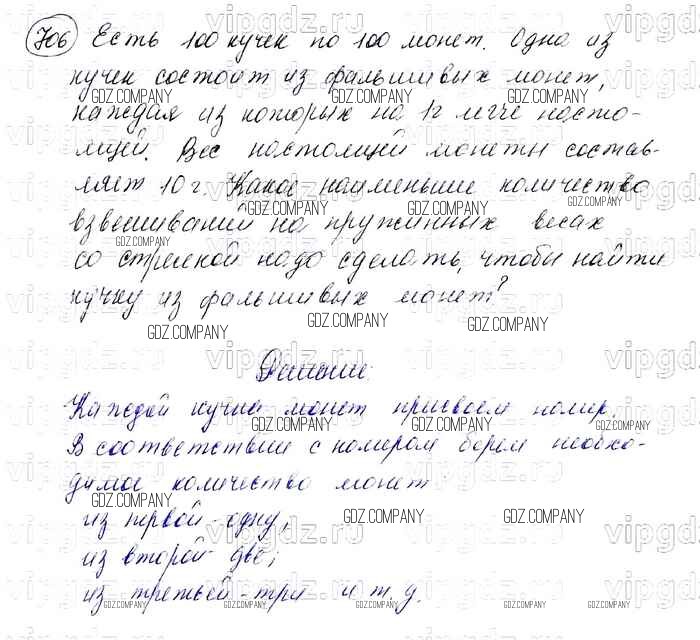 706 Есть 100 кучек по 100 монет. Одна из
кучек состоит из фальшивых монет,
каждая из которых на 1г легче насто-
ящей. Вес настоящей монеты состав-
ляет 10 г. Какое наименьшее количество
взвешиваний на пружинных весах
со стрелкой надо сделать, чтобы найти
кучку из фальшивых монет?
Решение:
Каждой кучке монет присвоем номер.
В соответствии с номером берем необхо-
димое количество монет
из первой - одну;
из второй - две;
из третьей - три и т.д.